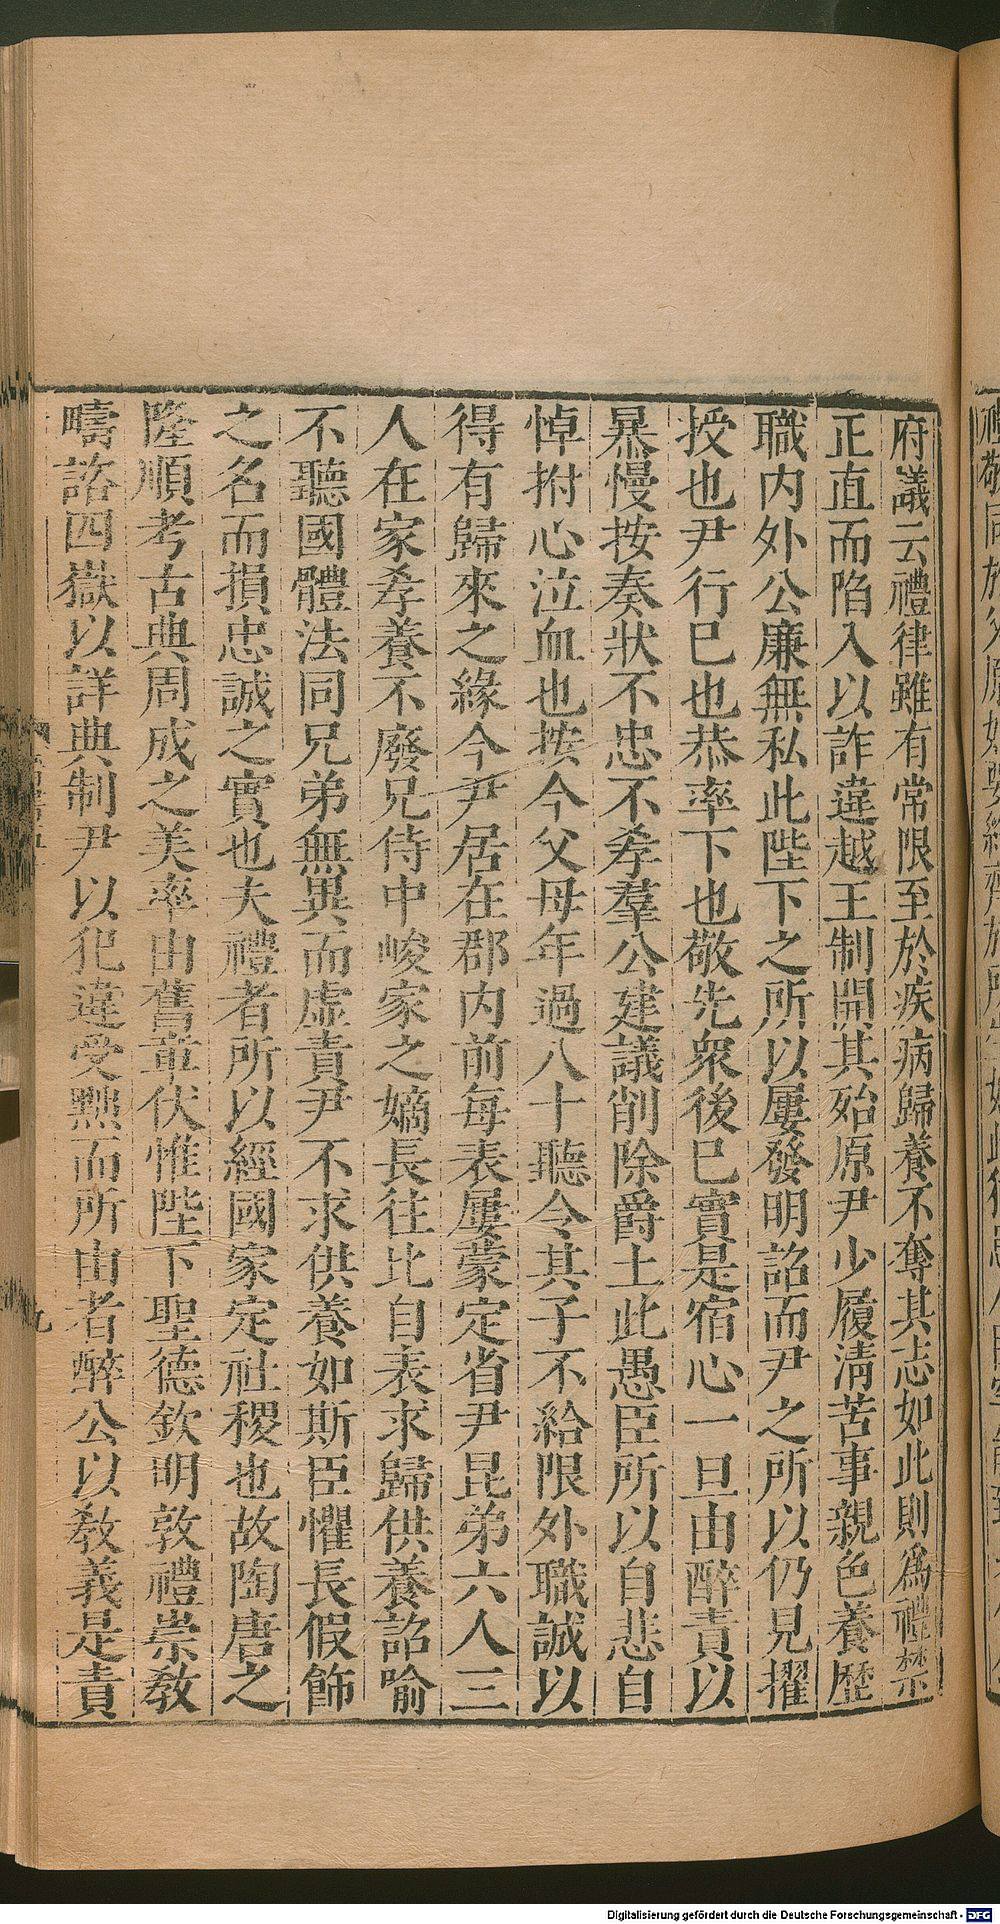 府議云禮律雖有常限至於疾病歸養不奪其志如此則爲禮禁
正直而陷入以詐違越王制開其殆原尹少履清苦事親色養歷
職内外公廉無私此陛下之所以屢發明詔而尹之所以仍見擢
授也尹行巳也恭率下也敬先衆後巳實是宿心一旦由醉責以
暴慢按奏狀不忠不孝羣公建議削除爵土此愚臣所以自悲自
悼拊心泣血也按今父母年過八十聽令其子不給限外職誠以
得有歸來之緣今尹居在郡内前每表屢蒙定省尹昆弟六人三
人在家孝養不廢兄侍中峻家之嫡長往比自表求歸供養詔喻
不聽國體法同兄弟無異而虛責尹不求供養如斯臣懼長假飾
之名而損忠誠之實也夫禮者所以經國家定社稷也故陶唐之
隆順考古典周成之美率由舊章伏惟陛下聖德欽明敦禮崇教
疇諮四嶽以詳典制尹以犯違受黜而所由者醉公以教義是責
九
Digitalisierung gefördert durch die Deutsche Forschungsgemeinschaft - DFG